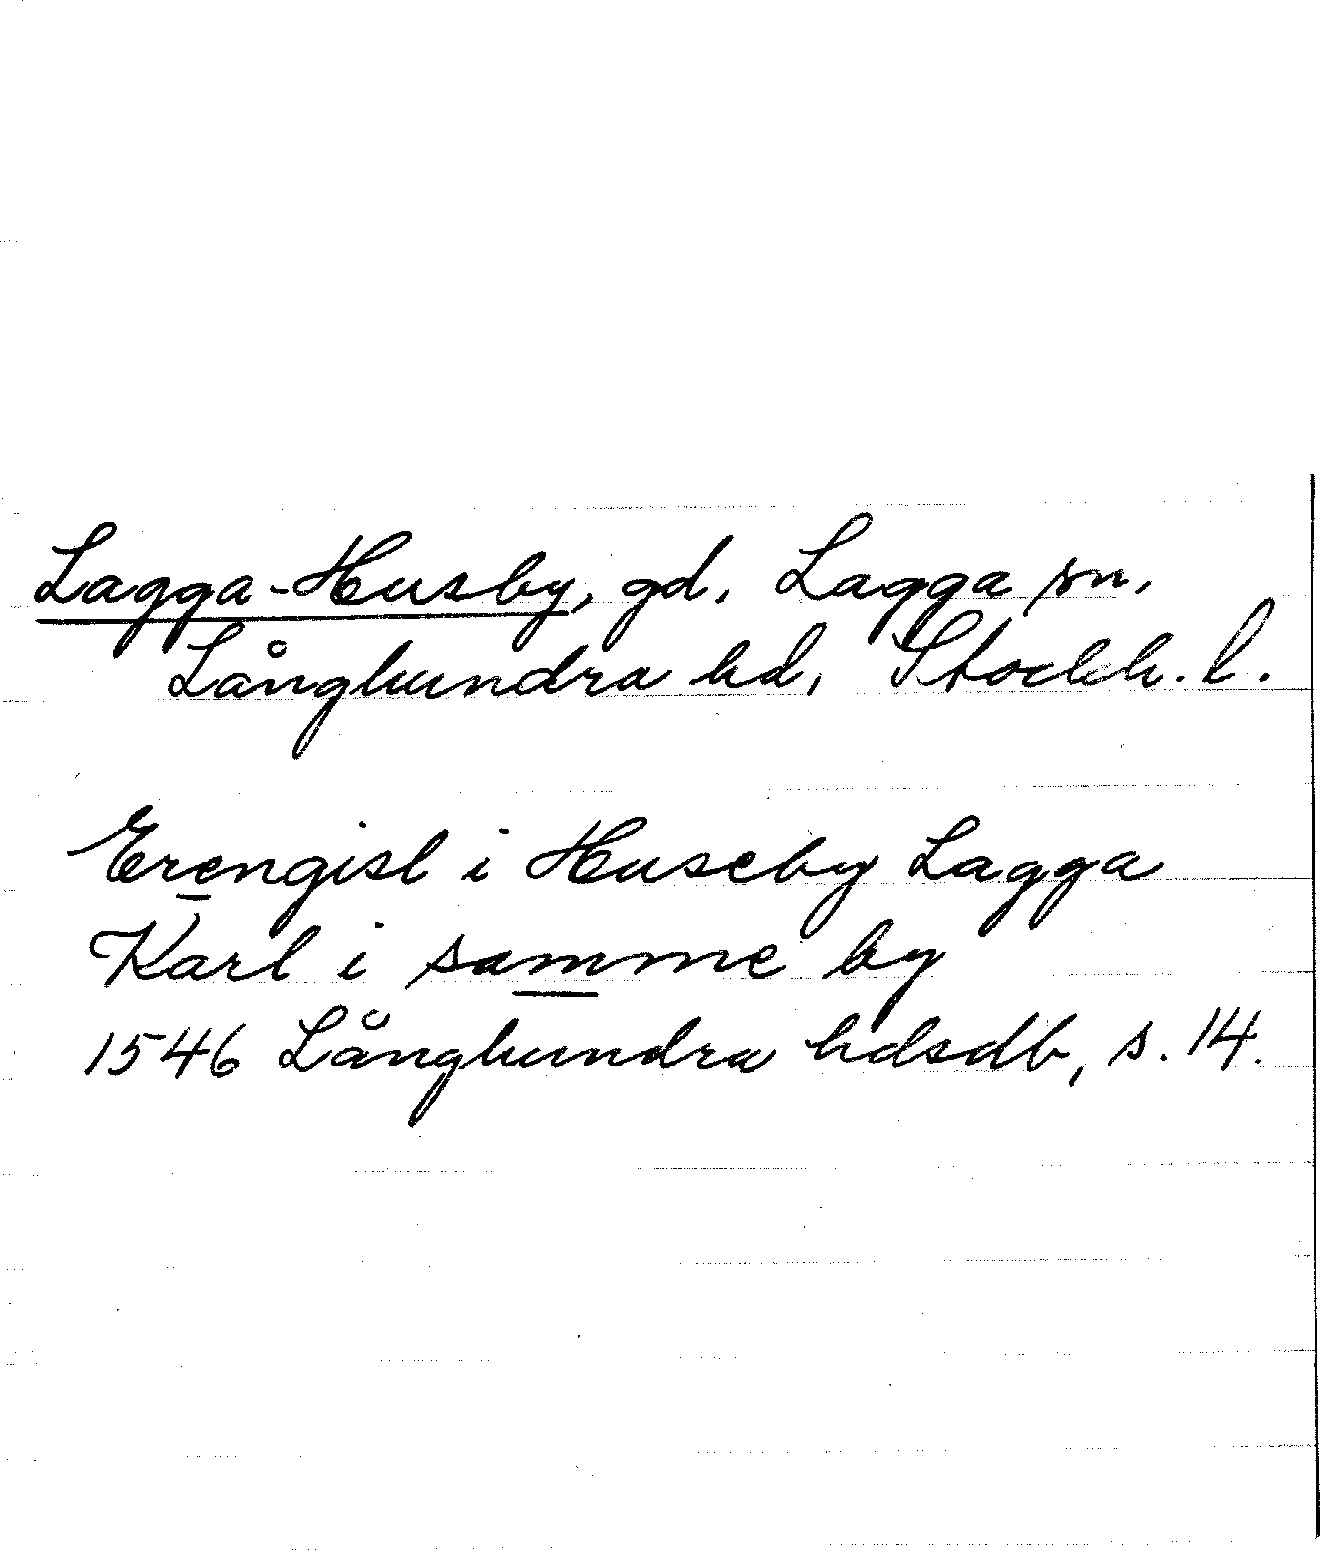 Lagga-Husby, gd, Lagga sn,
Långhundra hd, Stockh. l.
Erengisl i Huseby Lagga
Karl i samme by
1546 Långhundra hdsdb, s. 14.